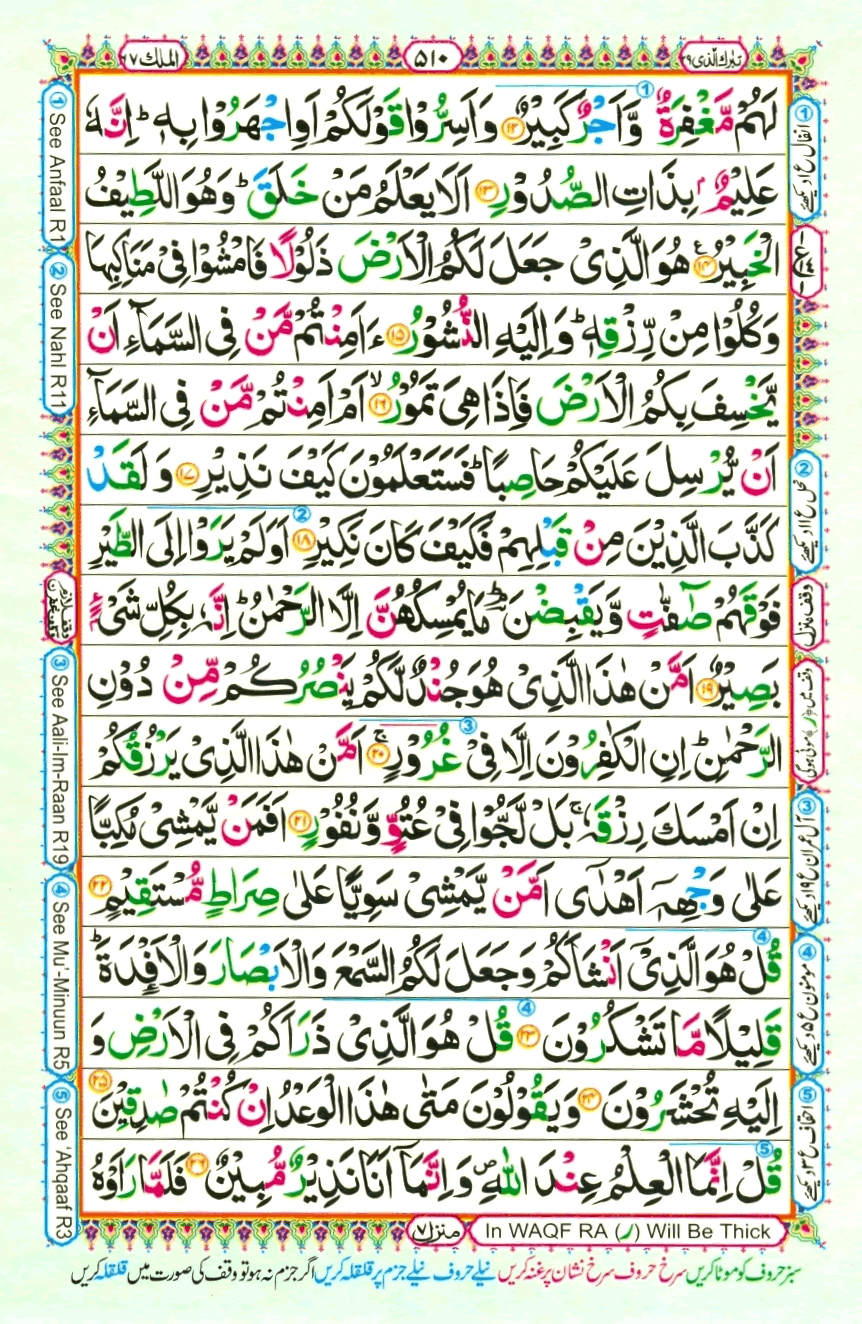 تبٰرک الذی ۲۹
۵۱۰
الملک ۶۷
لَهُمْ مَّغْفِرَةٌ وَّاَجْرٌ كَبِيْرٌ ﴿۱۲﴾ وَاَسِرُّوْا قَوْلَكُمْ اَوِ اجْهَرُوْا بِهٖ ؕ اِنَّهٗ
عَلِيْمٌۢ بِذَاتِ الصُّدُوْرِ ﴿۱۳﴾ اَلَا يَعْلَمُ مَنْ خَلَقَ ؕ وَهُوَ اللَّطِيْفُ
الْخَبِيْرُ ﴿۱۴﴾ هُوَ الَّذِيْ جَعَلَ لَكُمُ الْاَرْضَ ذَلُوْلًا فَامْشُوْا فِيْ مَنَاكِبِهَا
وَكُلُوْا مِنْ رِّزْقِهٖ ؕ وَاِلَيْهِ النُّشُوْرُ ﴿۱۵﴾ ءَاَمِنْتُمْ مَّنْ فِي السَّمَآءِ اَنْ
يَّخْسِفَ بِكُمُ الْاَرْضَ فَاِذَا هِيَ تَمُوْرُ ﴿۱۶﴾ۙ اَمْ اَمِنْتُمْ مَّنْ فِي السَّمَآءِ
اَنْ يُّرْسِلَ عَلَيْكُمْ حَاصِبًا ؕ فَسَتَعْلَمُوْنَ كَيْفَ نَذِيْرِ ﴿۱۷﴾ وَلَقَدْ
كَذَّبَ الَّذِيْنَ مِنْ قَبْلِهِمْ فَكَيْفَ كَانَ نَكِيْرِ ﴿۱۸﴾ اَوَلَمْ يَرَوْا اِلَى الطَّيْرِ
فَوْقَهُمْ صٰٓفّٰتٍ وَّيَقْبِضْنَ ؕ مَا يُمْسِكُهُنَّ اِلَّا الرَّحْمٰنُ ؕ اِنَّهٗ بِكُلِّ شَيْءٍۭ
بَصِيْرٌ ﴿۱۹﴾ اَمَّنْ هٰذَا الَّذِيْ هُوَ جُنْدٌ لَّكُمْ يَنْصُرُكُمْ مِّنْ دُوْنِ
الرَّحْمٰنِ ؕ اِنِ الْكٰفِرُوْنَ اِلَّا فِيْ غُرُوْرٍ ﴿۲۰﴾ۚ اَمَّنْ هٰذَا الَّذِيْ يَرْزُقُكُمْ
اِنْ اَمْسَكَ رِزْقَهٗ ۚ بَلْ لَّجُّوْا فِيْ عُتُوٍّ وَّنُفُوْرٍ ﴿۲۱﴾ اَفَمَنْ يَّمْشِيْ مُكِبًّا
عَلٰى وَجْهِهٖٓ اَهْدٰٓى اَمَّنْ يَّمْشِيْ سَوِيًّا عَلٰى صِرَاطٍ مُّسْتَقِيْمٍ ﴿۲۲﴾
قُلْ هُوَ الَّذِيْٓ اَنْشَاَكُمْ وَجَعَلَ لَكُمُ السَّمْعَ وَالْاَبْصَارَ وَالْاَفْـِٕدَةَ ؕ
قَلِيْلًا مَّا تَشْكُرُوْنَ ﴿۲۳﴾ قُلْ هُوَ الَّذِيْ ذَرَاَكُمْ فِي الْاَرْضِ وَ
اِلَيْهِ تُحْشَرُوْنَ ﴿۲۴﴾ وَيَقُوْلُوْنَ مَتٰى هٰذَا الْوَعْدُ اِنْ كُنْتُمْ صٰدِقِيْنَ ﴿۲۵﴾
قُلْ اِنَّمَا الْعِلْمُ عِنْدَ اللّٰهِ ۪ وَاِنَّمَآ اَنَا نَذِيْرٌ مُّبِيْنٌ ﴿۲۶﴾ فَلَمَّا رَاَوْهُ
① انفال ع ۱ دیکھئے
② نحل ع ۱۱ دیکھئے
وقف منزل
③ آل عمران ع ۱۹ دیکھئے
④ مومنون ع ۵ دیکھئے
⑤ احقاف ع ۳ دیکھئے
① See Anfaal R1
② See Nahl R11
وقف لازم
③ See Aali-Im-Raan R19
④ See Mu'-Minuun R5
⑤ See 'Ahqaaf R3
منزل ۷
In WAQF RA (ر) Will Be Thick
سبز حروف کو موٹا کریں سرخ حروف سرخ نشان پر غنہ کریں نیلے حروف نیلے جزم پر قلقلہ کریں اگر جزم نہ ہو تو وقف کی صورت میں قلقلہ کریں